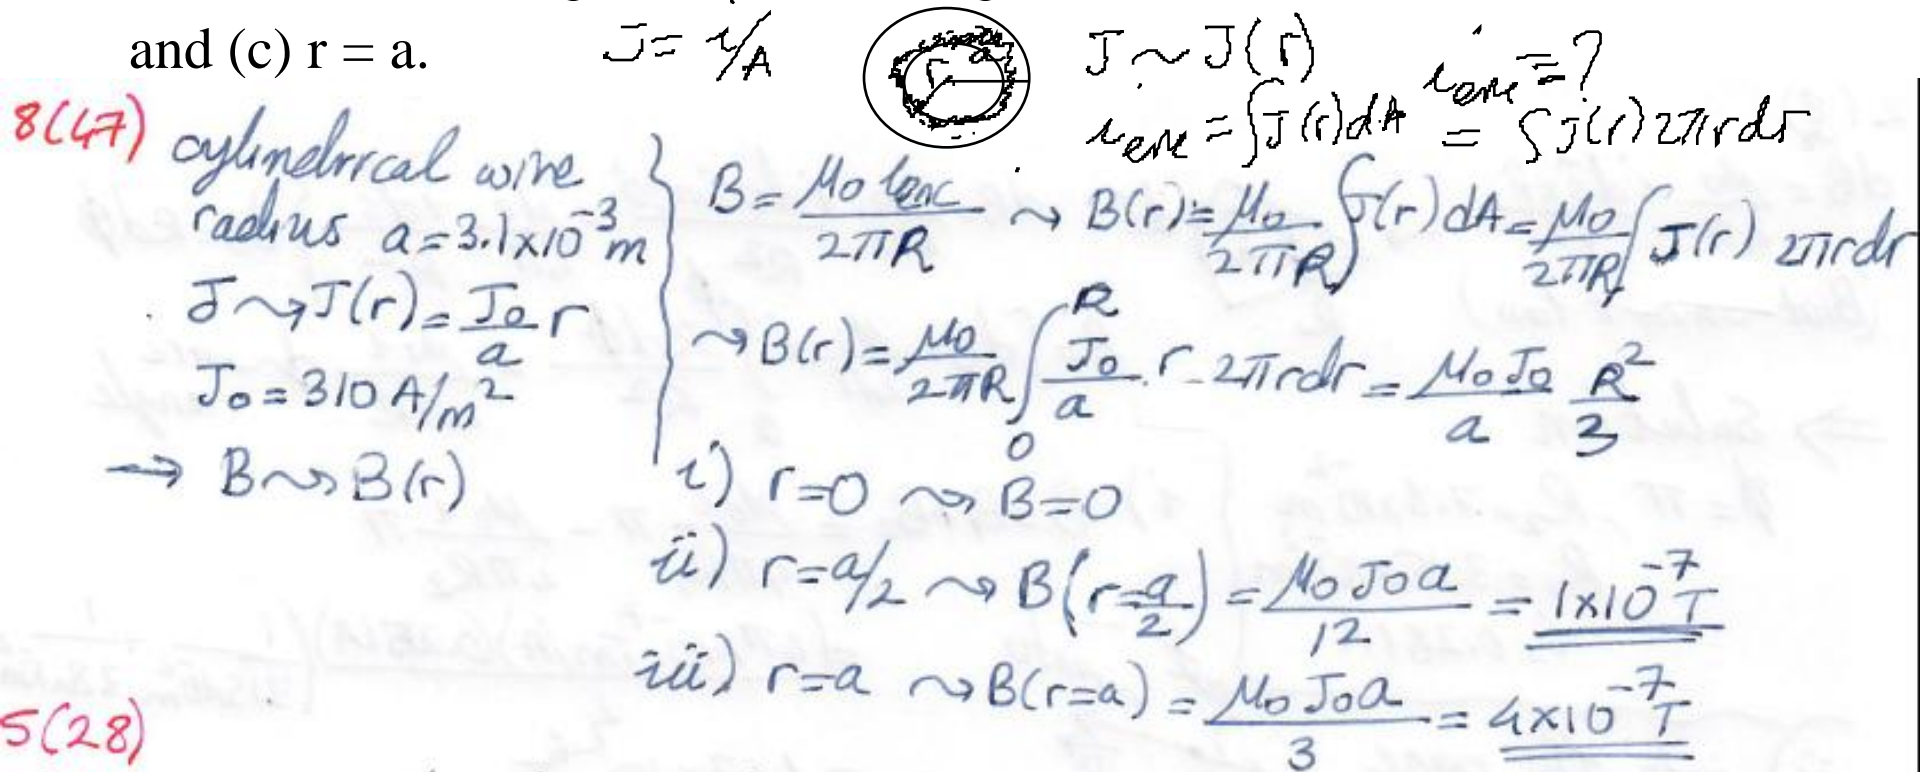 and (c) r = a.
J = i/A
r
a
J ~ J(r)
i_enc = ?
i_enc = ∫J(r)dA = ∫J(r)2πrdr
8(47)
cylindrical wire
radius a=3.1x10^-3 m
J ⇝ J(r) = J₀/a r
J₀ = 310 A/m²
→ B ⇝ B(r)
B = μ₀ i_enc / 2πR ⇝ B(r) = μ₀/2πR ∫J(r)dA = μ₀/2πR ∫J(r) 2πrdr
⇝ B(r) = μ₀/2πR ∫₀^R J₀/a . r . 2πrdr = μ₀J₀/a R²/3
i) r=0 ⇝ B=0
ii) r=a/2 ⇝ B(r=a/2) = μ₀J₀a/12 = 1x10^-7 T
iii) r=a ⇝ B(r=a) = μ₀J₀a/3 = 4x10^-7 T
5(28)